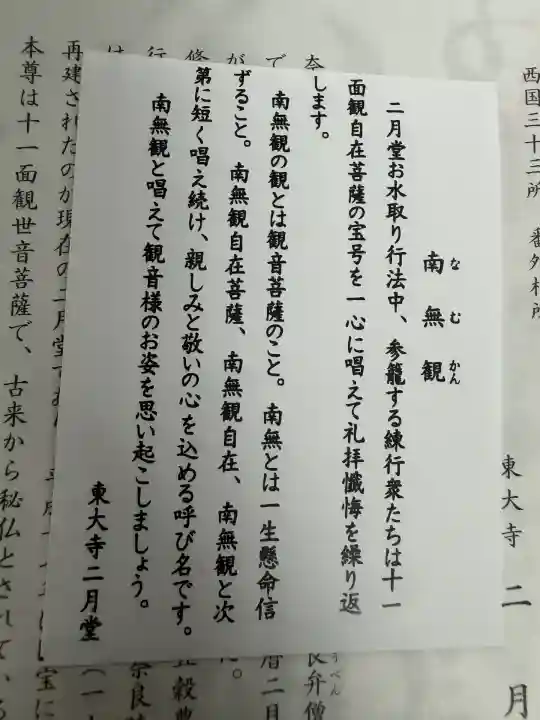 西国三十三所 番外札所
東大寺 二月
南無観
なむかん
二月堂お水取り行法中、参籠する練行衆たちは十一
面観自在菩薩の宝号を一心に唱えて礼拝懺悔を繰り返
します。
南無観の観とは観音菩薩のこと。南無とは一生懸命信
ずること。南無観自在菩薩、南無観自在、南無観と次
第に短く唱え続け、親しみと敬いの心を込める呼び名です。
南無観と唱えて観音様のお姿を思い起こしましょう。
東大寺二月堂
再建されたのが現在の二月堂
本尊は十一面観世音菩薩で、古来から秘仏とされている